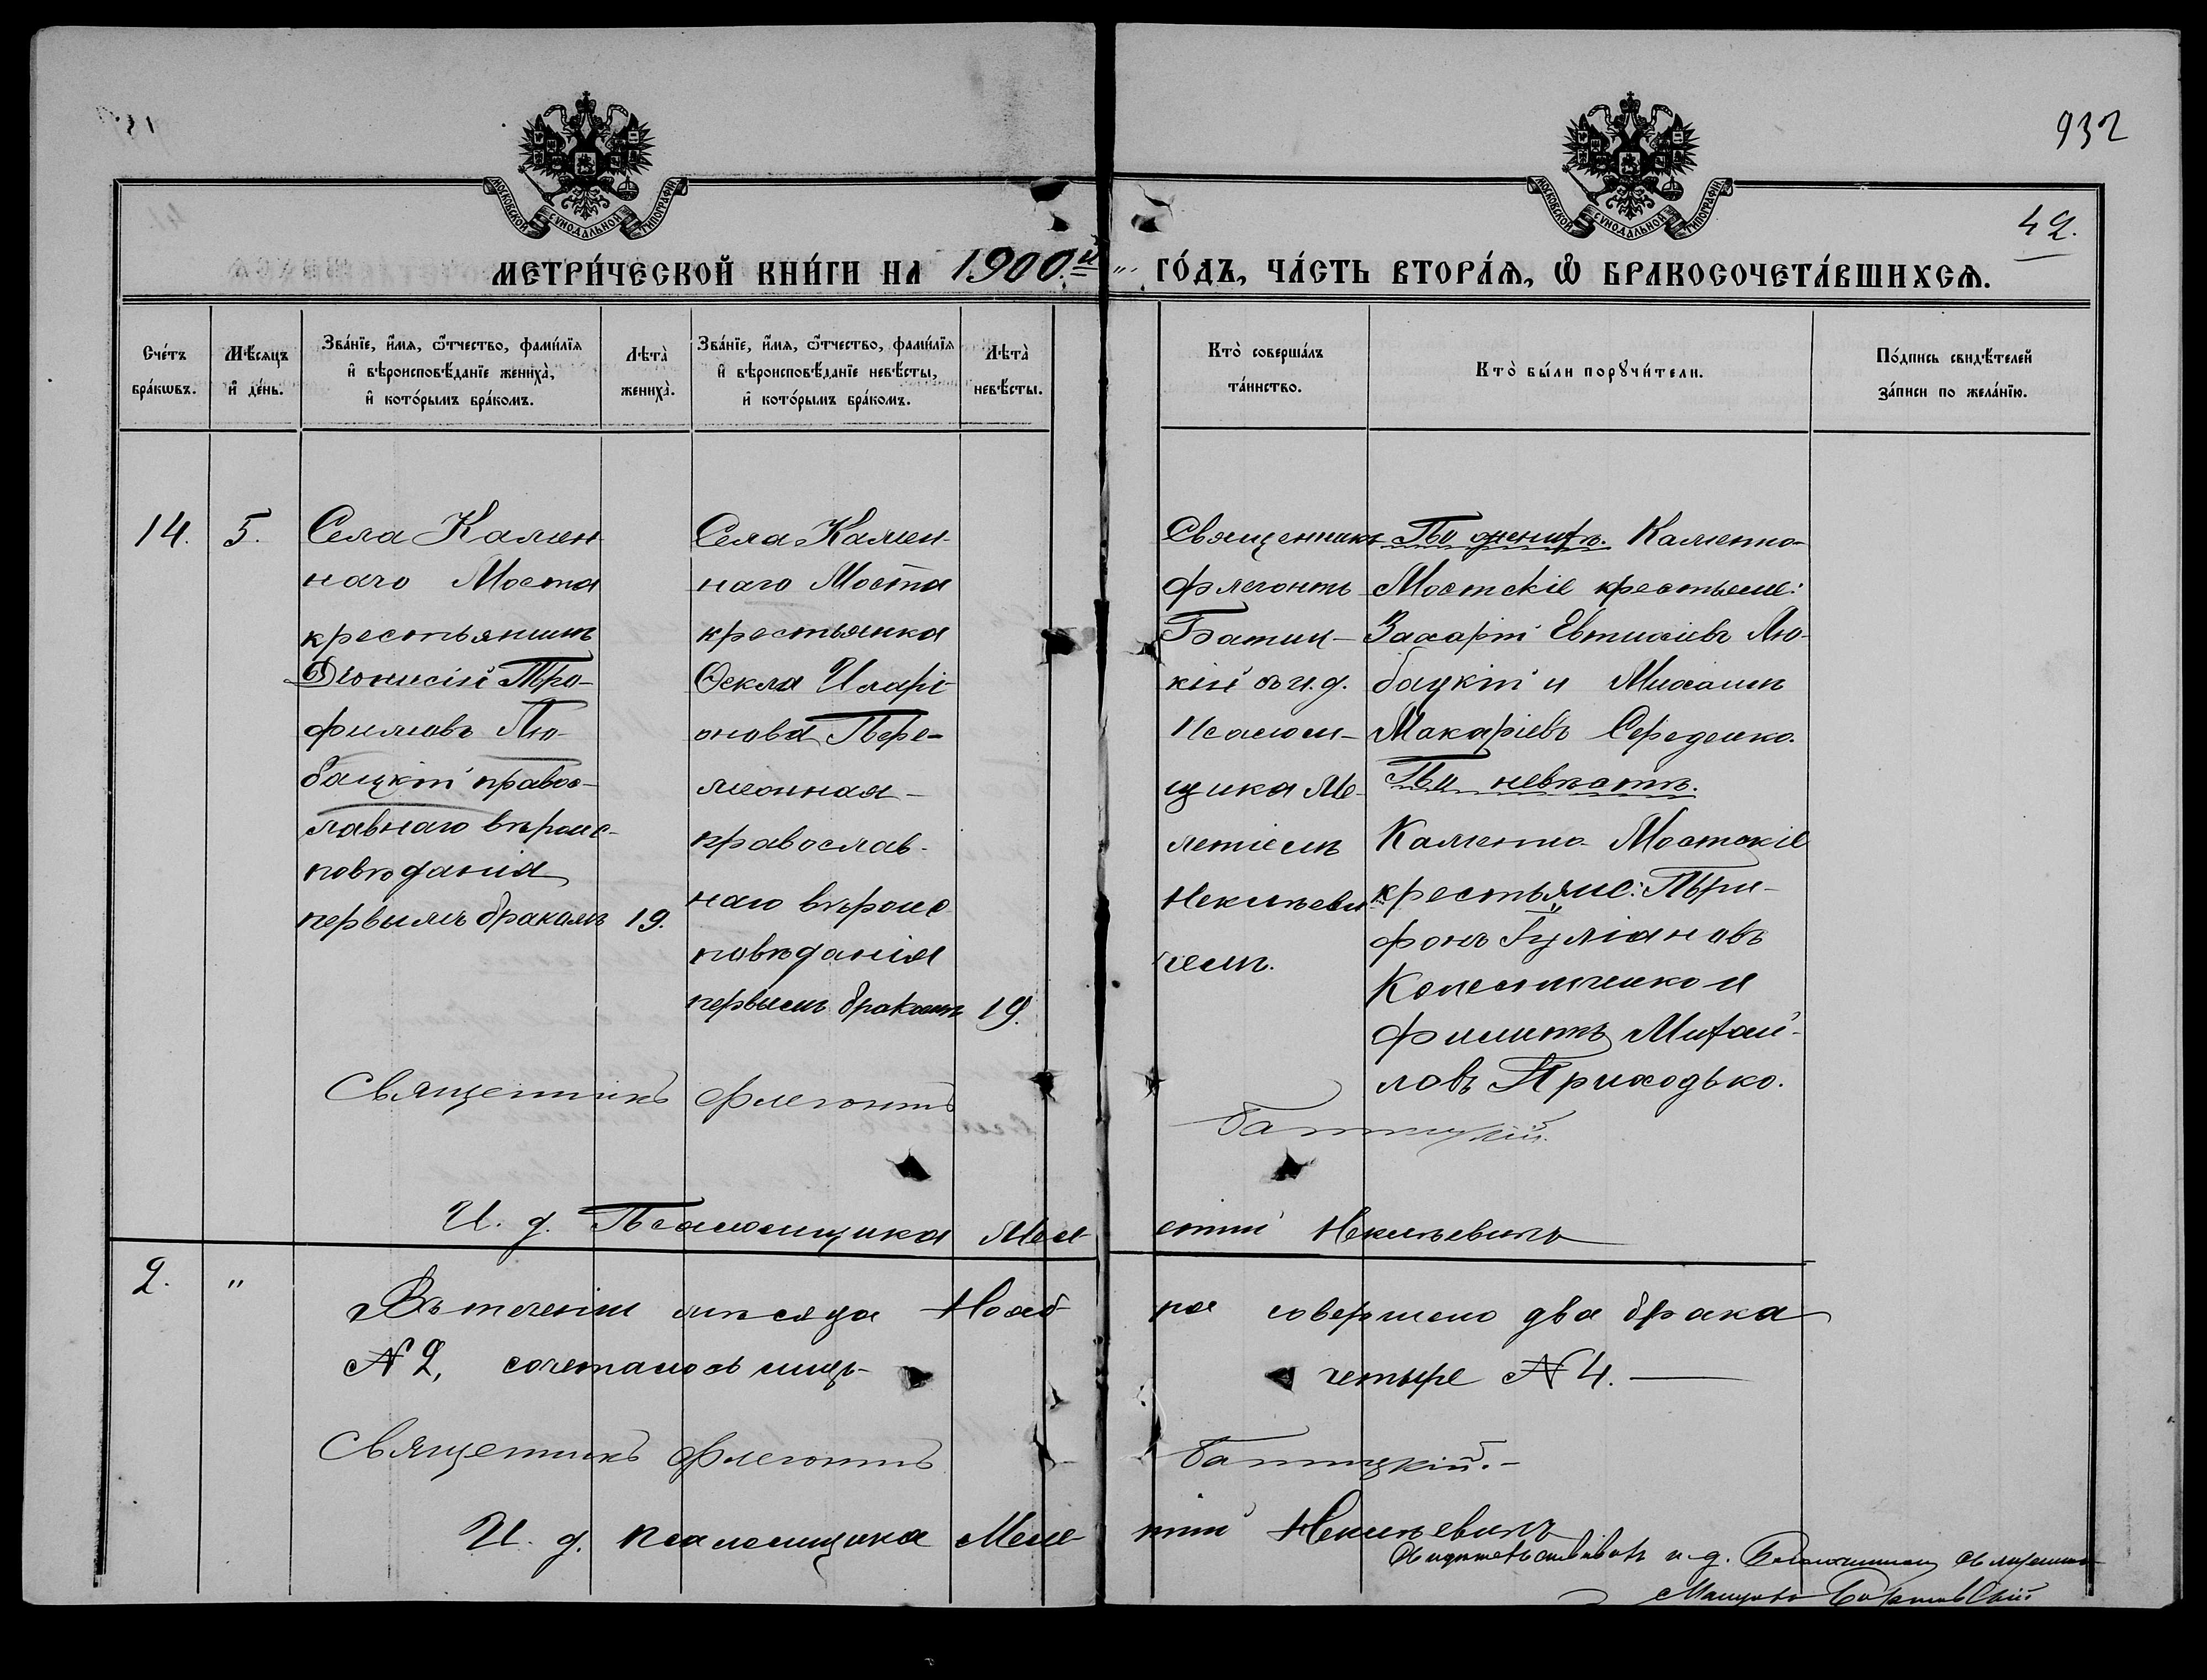 932
42.
МОСКОВСКОЙ СѴНОДАЛЬНОЙ ТИПОГРАФІИ
МОСКОВСКОЙ СѴНОДАЛЬНОЙ ТИПОГРАФІИ
МЕТРИ́ЧЕСКОЙ КНИ́ГИ НА 1900.й
ГО́ДЪ, ЧА́СТЬ ВТОРА́Ѧ, Ѽ БРАКОСОЧЕТА́ВШИХСѦ.
Сче́тъ бра́кѡвъ.
Мѣ́сяцъ и҆ де́нь.
Зва́нїе, и҆́мя, ѻ҆́тчество, фами́лїя и҆ вѣроисповѣ́данїе жениха̀, и҆ кото́рымъ бра́комъ.
Лѣта̀ жениха̀.
Зва́нїе, и҆́мя, ѻ҆́тчество, фами́лїя и҆ вѣроисповѣ́данїе невѣ́сты, и҆ кото́рымъ бра́комъ.
Лѣта̀ невѣ́сты.
Кто̀ соверша́лъ та́инство.
Кто̀ бы́ли порꙋчи́тели.
По́дпись свидѣ́телей за́писи по жела́нїю.
14.
5.
Села Камен-
наго Моста
крестьянинъ
Діонисій Тро-
фимовъ Лю-
бацкій правос-
лавнаго вѣроис-
повѣданія
первымъ бракомъ
19.
Села Камен-
наго Моста
крестьянка
Ѳекла Иларі-
онова Пере-
православ-
наго вѣроис-
повѣданія
первымъ бракомъ
19.
Священникъ
Флегонтъ
Батиц-
кій съ и. д.
Псалом-
щика Ме-
летіемъ
чемъ.
По женихѣ. Каменно-
Мостскіе крестьяне:
Захарій Евтихіевъ Лю-
бацкій и Михаилъ
Макаріевъ Середенко.
По невѣстѣ.
Каменно-Мостскіе
крестьяне: Три-
фонъ Іуліановъ
Колесниченко и
Филиппъ Михай-
ловъ Приходько.
Священникъ Флегонтъ Батицкій.
И. д. Псаломщика Мел-етій
2.
"
Въ теченіи мѣсяца Нояб-ря совершено два брака
№ 2, сочеталось лицъ- четыре № 4.
Священникъ Флегонтъ Батицкій.-
И. д. псаломщика Меле-тій
и. д.